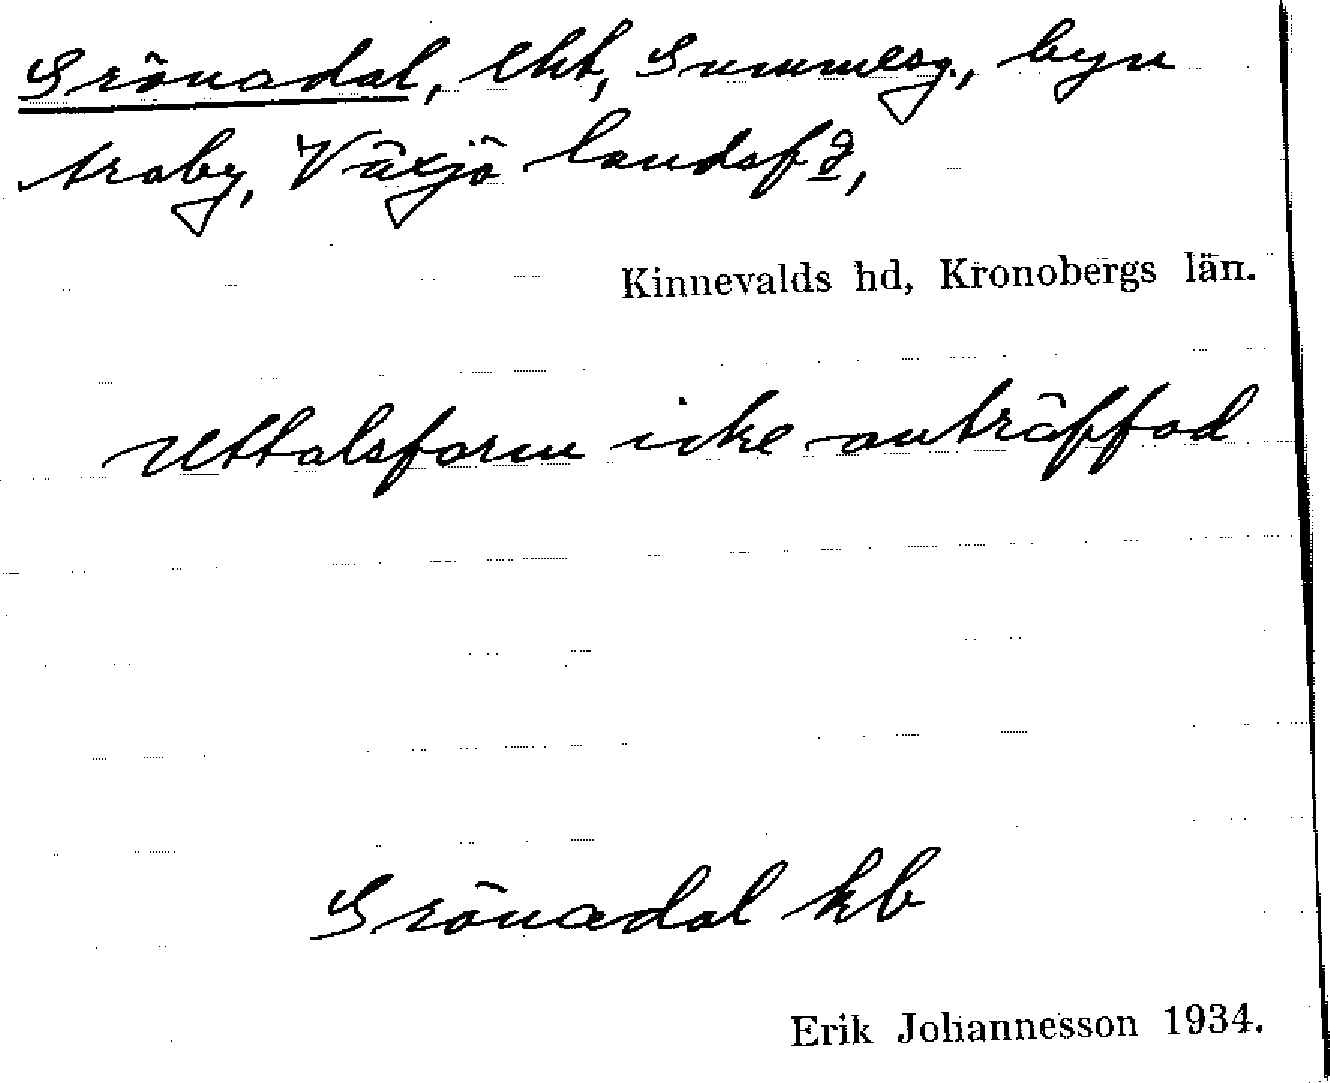 Grönadal, lht, Gummesg, byn
Araby, Växjö landsf g,
Kinnevalds hd, Kronobergs län.
Uttalsform icke anträffad
Grönadal kb
Erik Johannesson 1934.